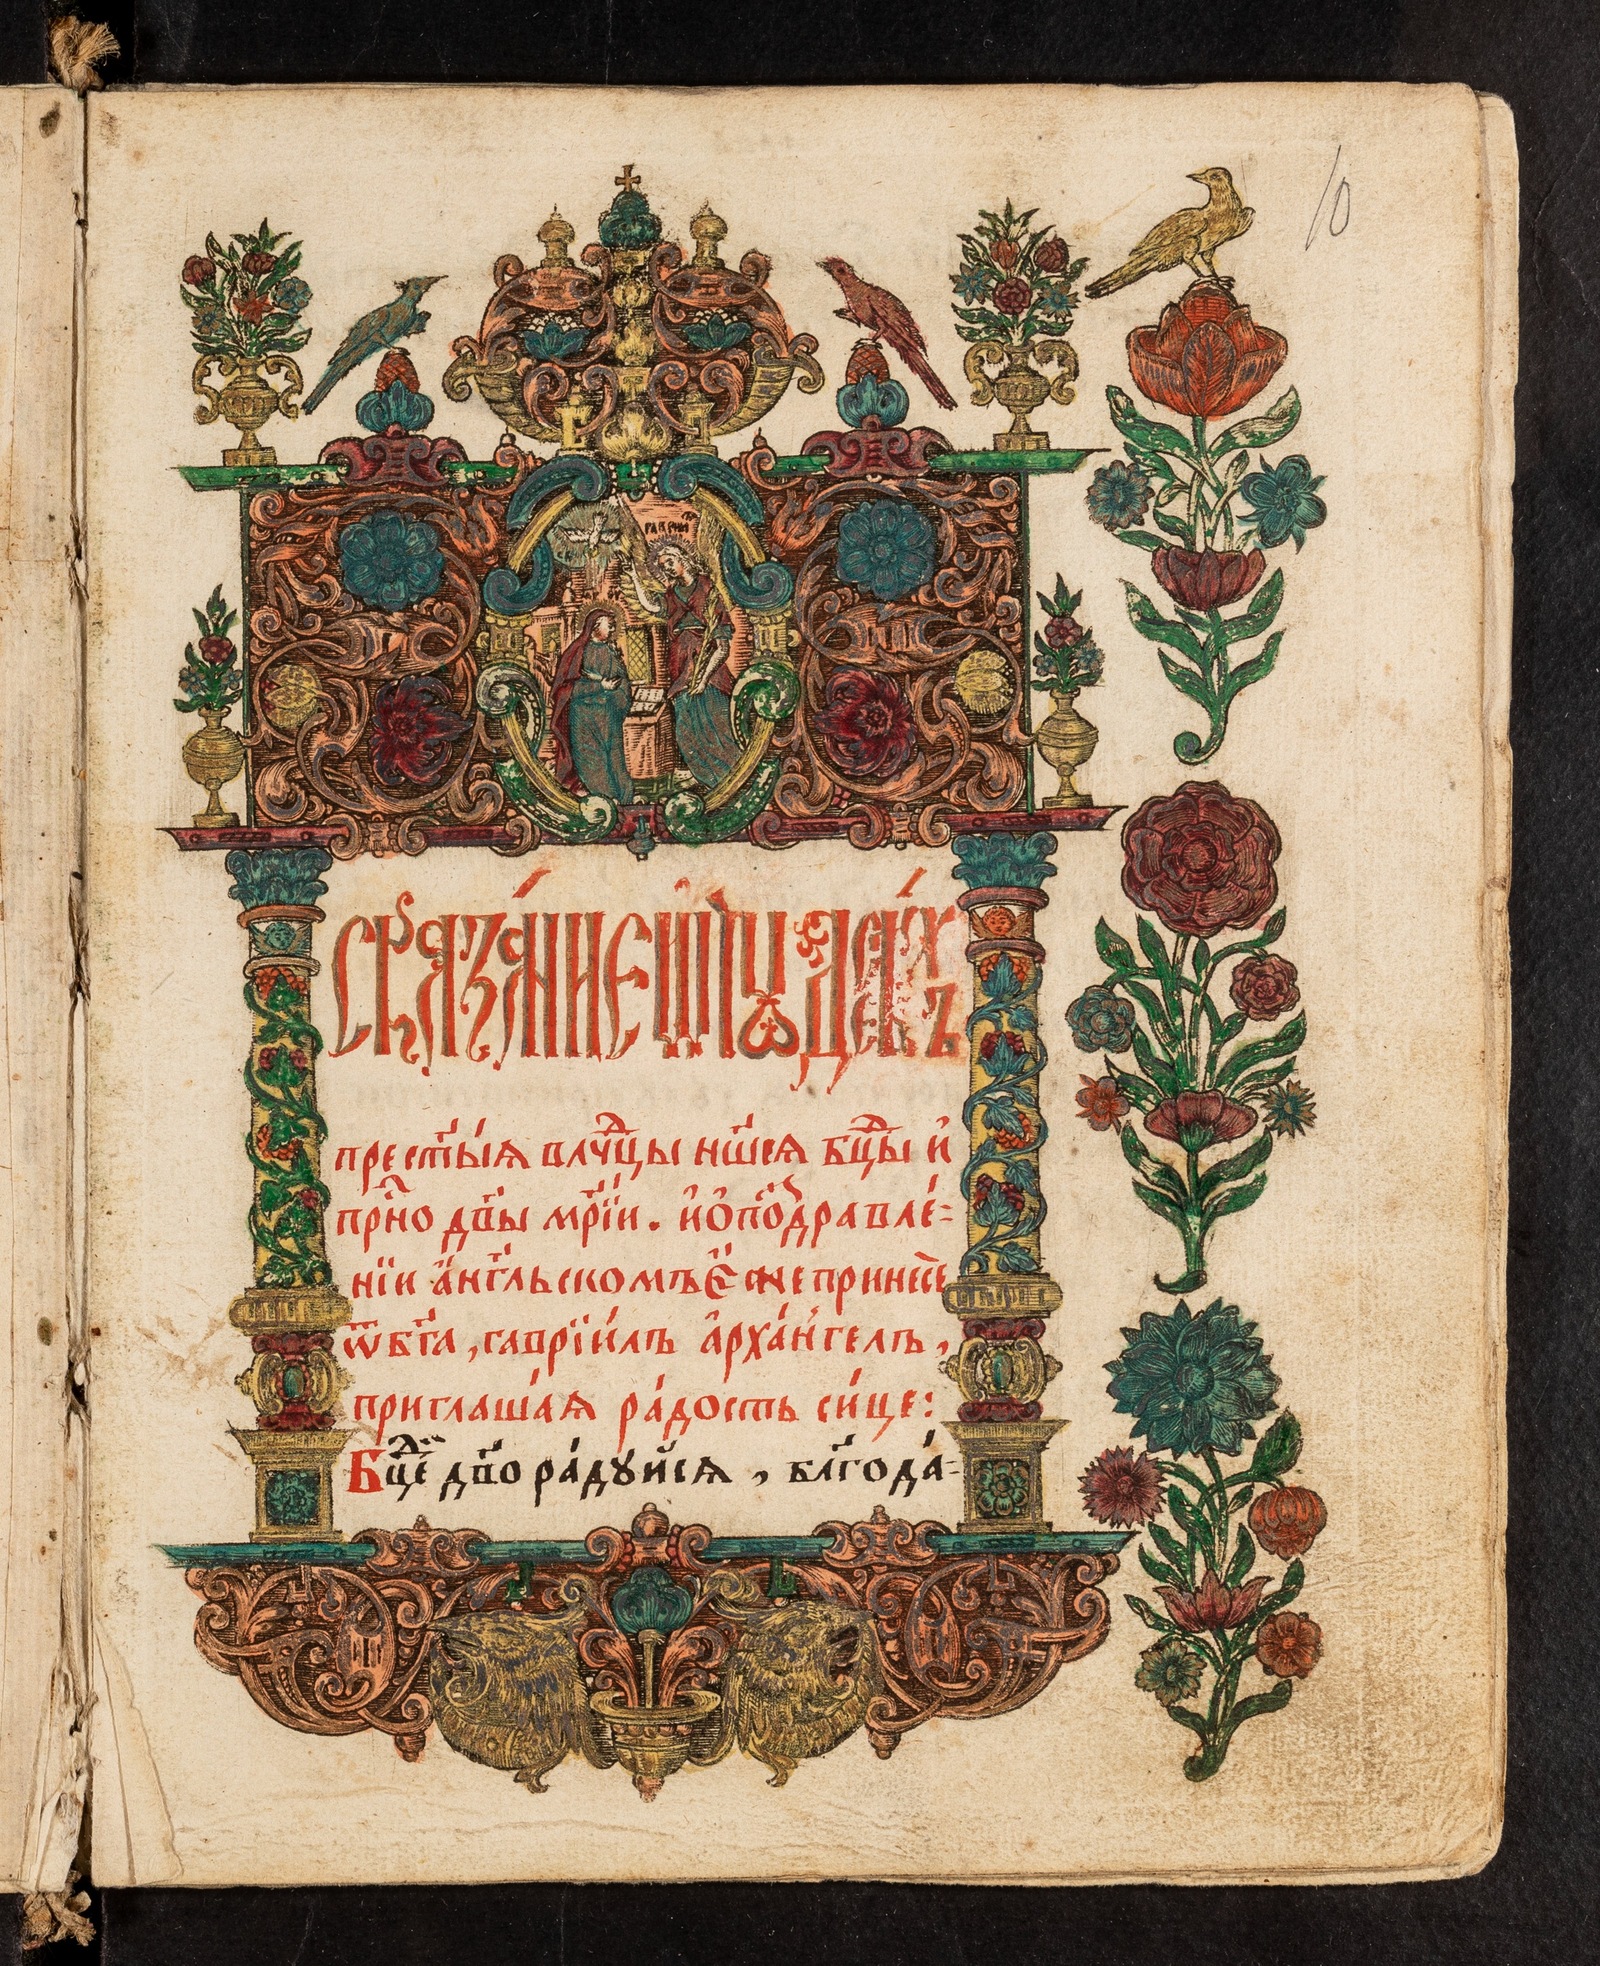 10
ГАВРИИ
Сказа́ние ѡ чꙋдесѣ́хъ
прест҃ы́ѧ влⷣчцы нш҃еѧ бцⷣы и҆
прⷭ҇но дв҃ы мр҃і́и. и҆ ѡ҆ поздравле́-
нїи а҆́нг҃льскомъ є҆́же принесѐ
ѿ бг҃а, гаврїи́лъ а҆рха́нгелъ,
приглаша́ѧ ра́дость си́це:
Бцⷣе дв҃о ра́дꙋйсѧ, бл҃года́-